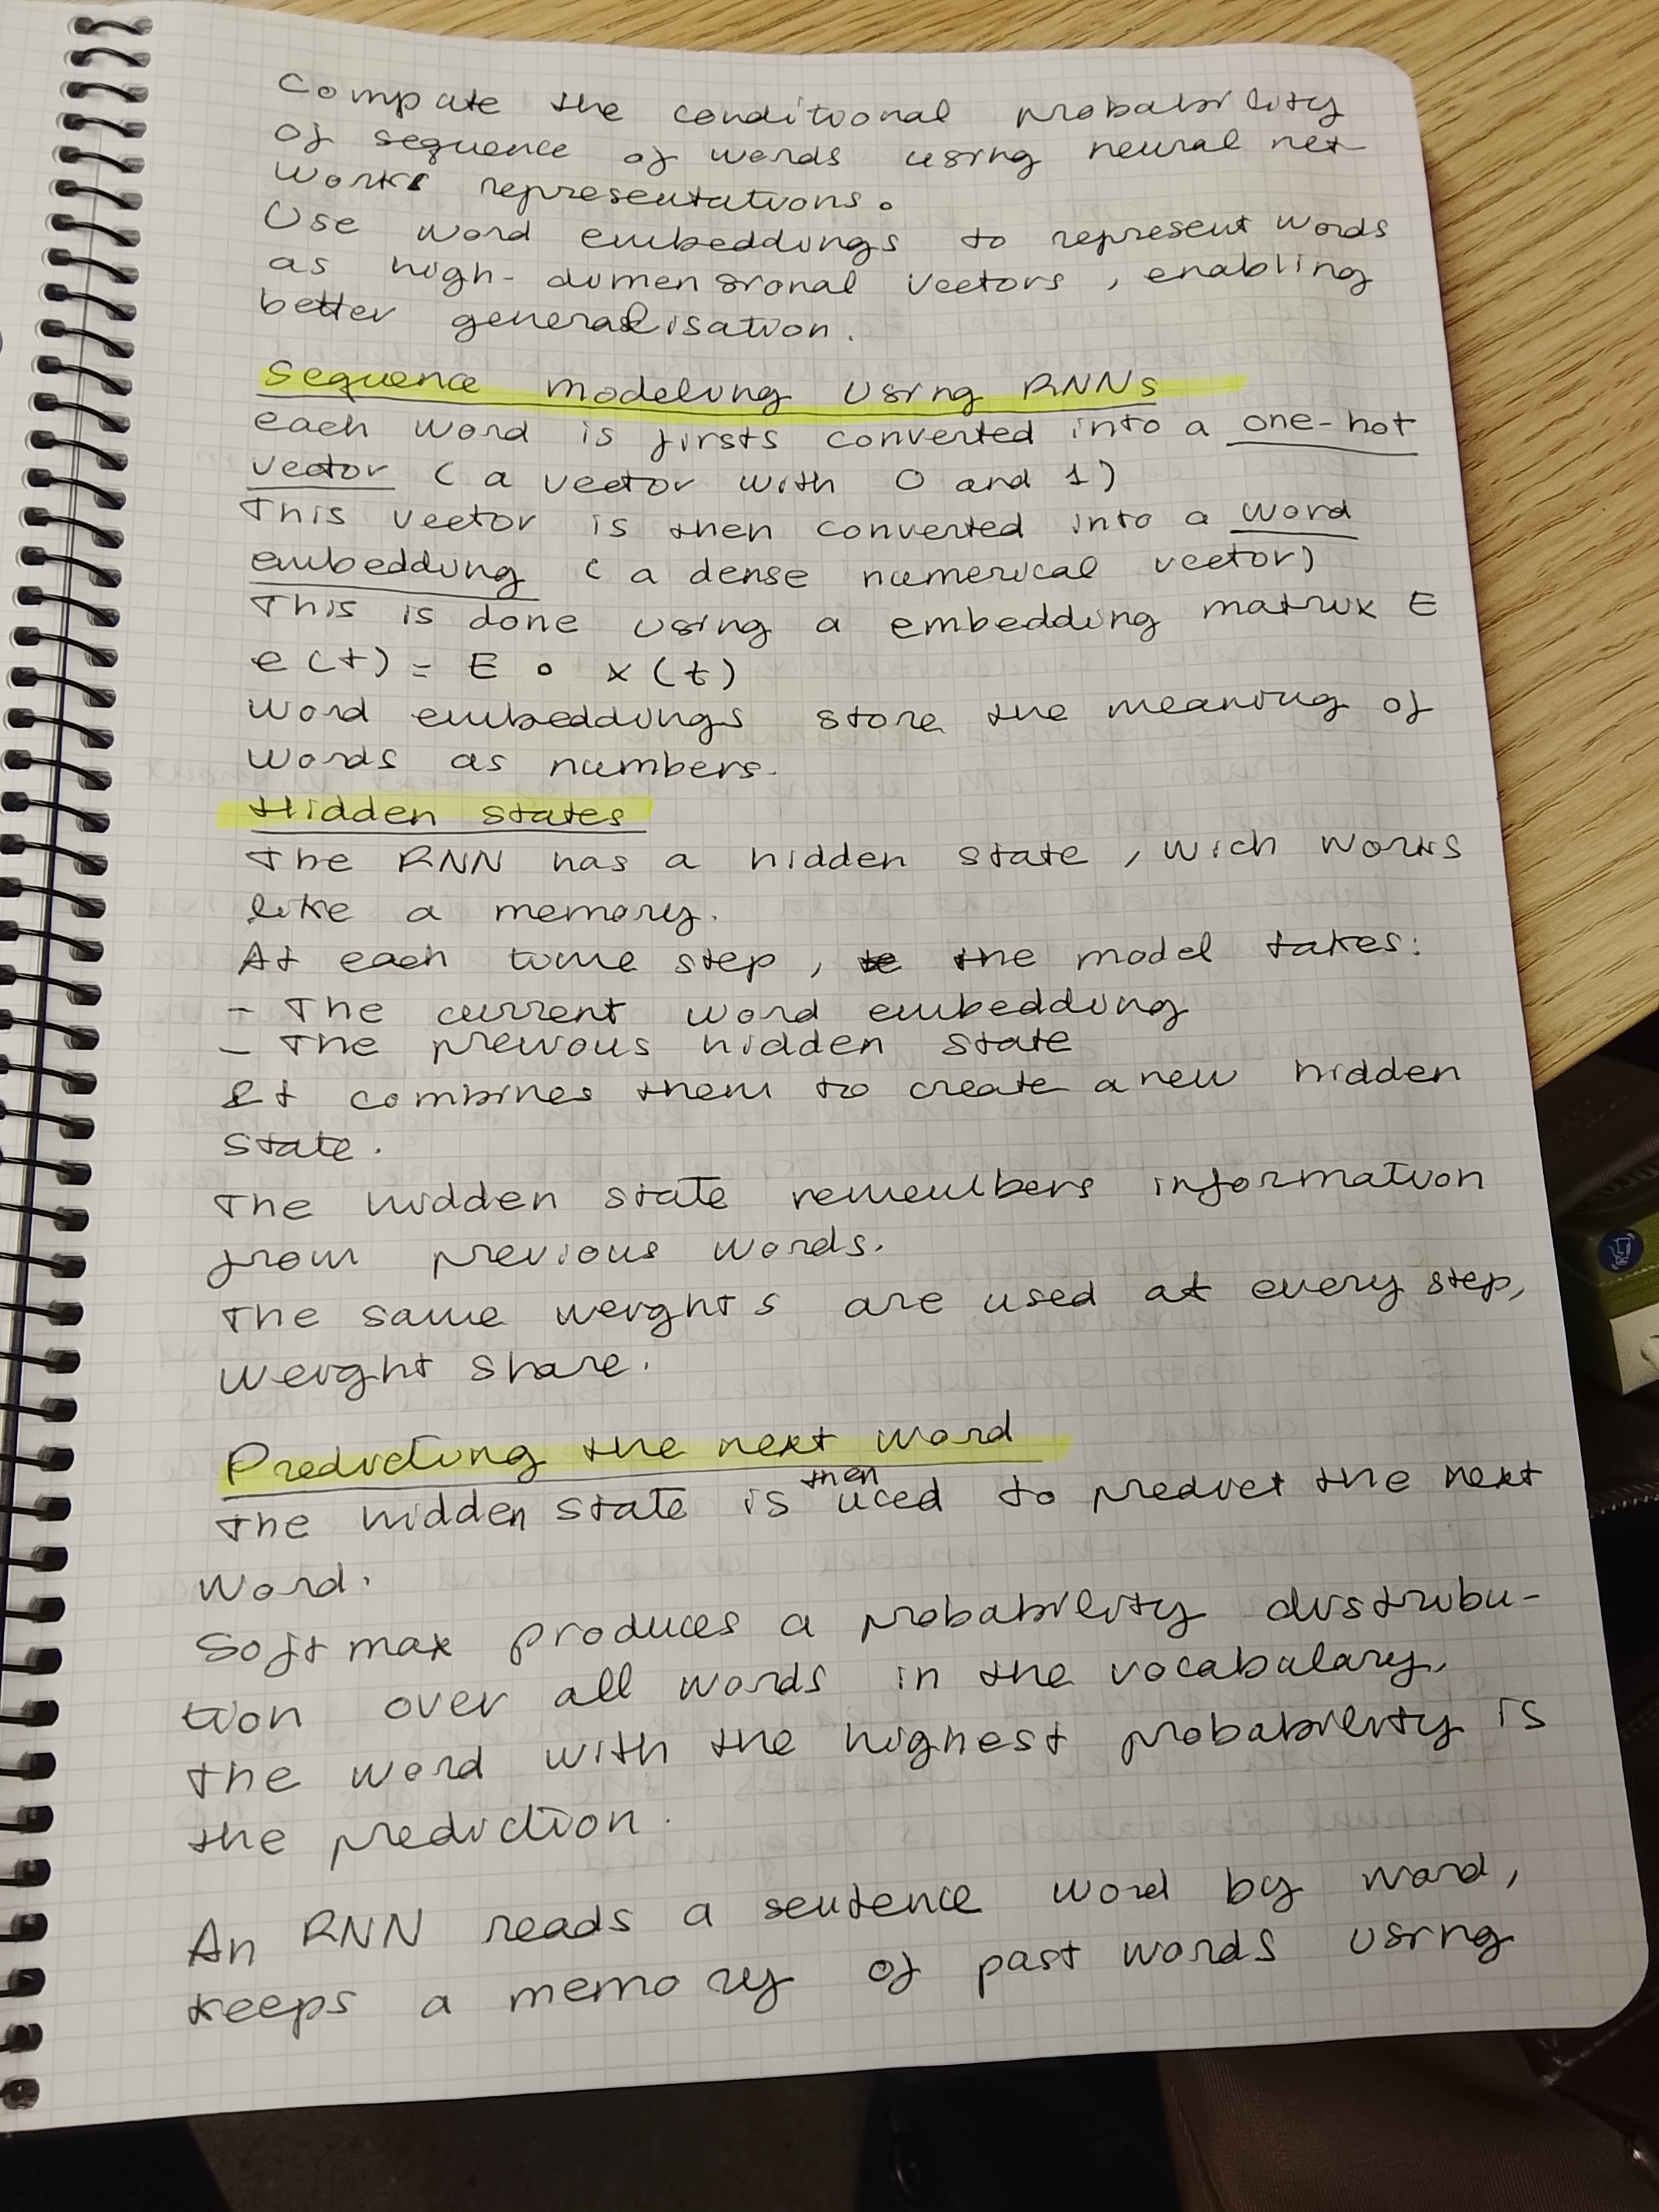 Compute the conditional probability
of sequence of words using neural net
works representations.
Use word embeddings to represent words
as high-dimensional vectors, enabling
better generalisation.
Sequence modeling using RNNs
each word is firsts converted into a one-hot
vector (a vector with 0 and 1)
This vector is then converted into a word
embedding (a dense numerical vector)
This is done using a embedding matrix E
e(t) = E ∘ x(t)
Word embeddings store the meaning of
words as numbers.
Hidden states
The RNN has a hidden state, wich works
like a memory.
At each time step, the model takes:
- The current word embedding
- The previous hidden state
It combines them to create a new hidden
state.
The hidden state remembers information
from previous words.
The same weights are used at every step,
weight share.
Predicting the next word
The hidden state is then used to predict the next
word.
Softmax produces a probability distribu-
tion over all words in the vocabulary.
The word with the highest probability is
the prediction.
An RNN reads a sentence word by word,
keeps a memory of past words using